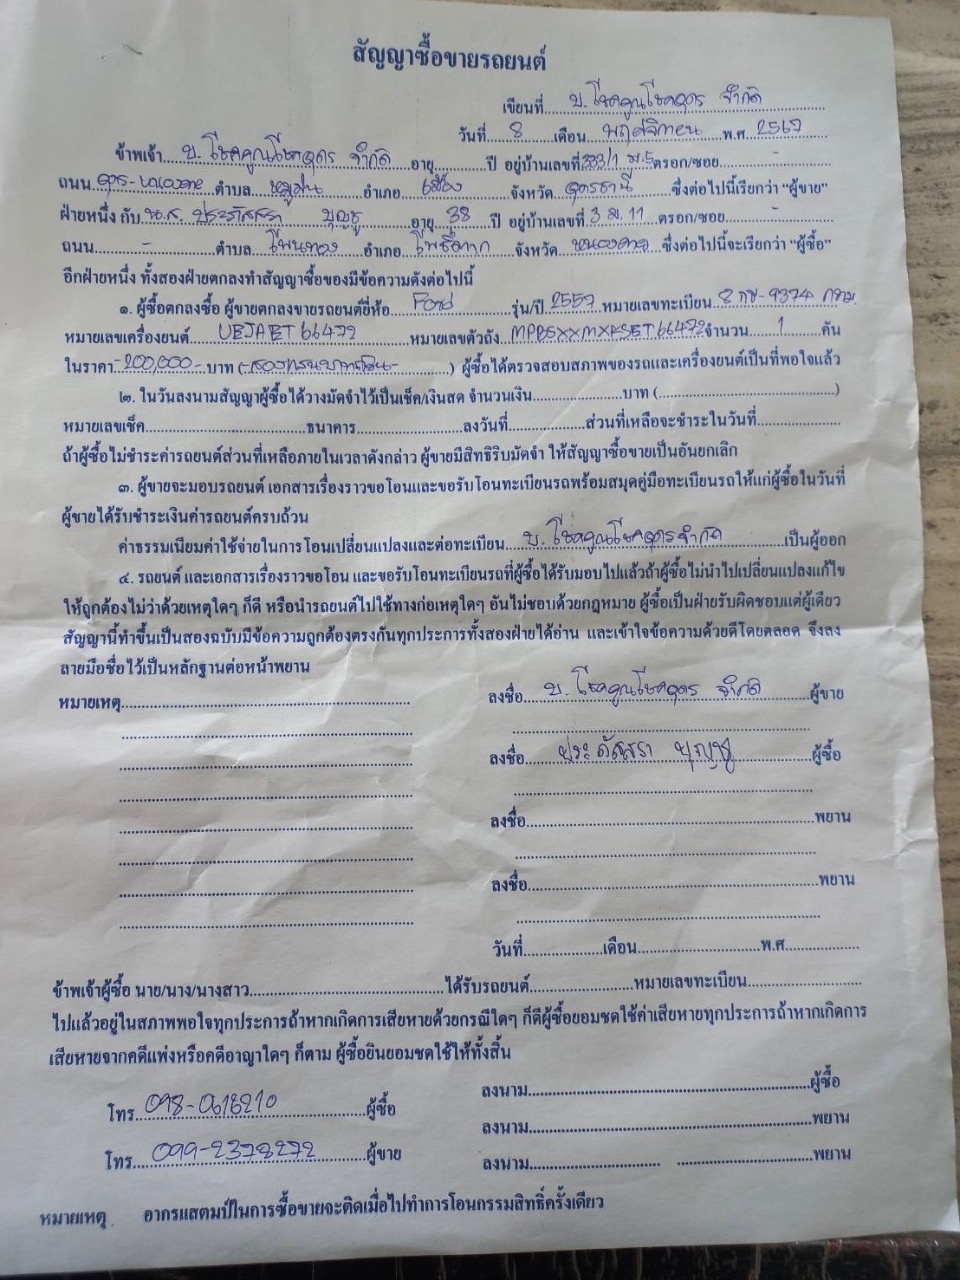 สัญญาซื้อขายรถยนต์
เขียนที่ บ.โชคคูณโชคอุดร จำกัด
วันที่ 8 เดือน พฤศจิกายน พ.ศ 2567
ข้าพเจ้า บ.โชคคูณโชคอุดร จำกัด อายุ ปี อยู่บ้านเลขที่ 333/1 ม.5 ตรอก/ซอย -
ถนน อุดร-หนองคาย ตำบล หมูม่น อำเภอ เมือง จังหวัด อุดรธานี ซึ่งต่อไปนี้เรียกว่า "ผู้ขาย"
ฝ่ายหนึ่ง กับ น.ส. ประภัสสรา บุญชู อายุ 38 ปี อยู่บ้านเลขที่ 3 ม.11 ตรอก/ซอย -
ถนน - ตำบล โพนทอง อำเภอ โพธิ์ตาก จังหวัด หนองคาย ซึ่งต่อไปนี้จะเรียกว่า "ผู้ซื้อ"
อีกฝ่ายหนึ่ง ทั้งสองฝ่ายตกลงทำสัญญาซื้อของมีข้อความดังต่อไปนี้
๑. ผู้ซื้อตกลงซื้อ ผู้ขายตกลงขายรถยนต์ยี่ห้อ Ford รุ่น/ปี 2557 หมายเลขทะเบียน 2 กช-9374 กทม
หมายเลขเครื่องยนต์ UEJAET66472 หมายเลขตัวถัง จำนวน 1 คัน
ในราคา -200,000.- บาท (-สองแสนบาทถ้วน-) ผู้ซื้อได้ตรวจสอบสภาพของรถและเครื่องยนต์เป็นที่พอใจแล้ว
๒. ในวันลงนามสัญญาผู้ซื้อได้วางมัดจำไว้เป็นเช็ค/เงินสด จำนวนเงิน บาท ( )
หมายเลขเช็ค ธนาคาร ลงวันที่ ส่วนที่เหลือจะชำระในวันที่
ถ้าผู้ซื้อไม่ชำระค่ารถยนต์ส่วนที่เหลือภายในเวลาดังกล่าว ผู้ขายมีสิทธิริบมัดจำ ให้สัญญาซื้อขายเป็นอันยกเลิก
๓. ผู้ขายจะมอบรถยนต์ เอกสารเรื่องราวขอโอนและขอรับโอนทะเบียนรถพร้อมสมุดคู่มือทะเบียนรถให้แก่ผู้ซื้อในวันที่
ผู้ขายได้รับชำระเงินค่ารถยนต์ครบถ้วน
ค่าธรรมเนียมค่าใช้จ่ายในการโอนเปลี่ยนแปลงและต่อทะเบียน บ.โชคคูณโชคอุดรจำกัด เป็นผู้ออก
๔. รถยนต์ และเอกสารเรื่องราวขอโอน และขอรับโอนทะเบียนรถที่ผู้ซื้อได้รับมอบไปแล้วถ้าผู้ซื้อไม่นำไปเปลี่ยนแปลงแก้ไข
ให้ถูกต้องไม่ว่าด้วยเหตุใดๆ ก็ดี หรือนำรถยนต์ไปใช้ทางก่อเหตุใดๆ อันไม่ชอบด้วยกฎหมาย ผู้ซื้อเป็นฝ่ายรับผิดชอบแต่ผู้เดียว
สัญญานี้ทำขึ้นเป็นสองฉบับมีข้อความถูกต้องตรงกันทุกประการทั้งสองฝ่ายได้อ่าน และเข้าใจข้อความด้วยดีโดยตลอด จึงลง
ลายมือชื่อไว้เป็นหลักฐานต่อหน้าพยาน
หมายเหตุ
ลงชื่อ บ.โชคคูณโชคอุดร จำกัด ผู้ขาย
ลงชื่อ ประภัสสรา บุญชู ผู้ซื้อ
ลงชื่อ พยาน
ลงชื่อ พยาน
วันที่ เดือน พ.ศ.
ข้าพเจ้าผู้ซื้อ นาย/นาง/นางสาว ได้รับรถยนต์ หมายเลขทะเบียน
ไปแล้วอยู่ในสภาพพอใจทุกประการถ้าหากเกิดการเสียหายด้วยกรณีใดๆ ก็ดีผู้ซื้อยอมชดใช้ค่าเสียหายทุกประการถ้าหากเกิดการ
เสียหายจากคดีแพ่งหรือคดีอาญาใดๆ ก็ตาม ผู้ซื้อยินยอมชดใช้ให้ทั้งสิ้น
ลงนาม ผู้ซื้อ
โทร 098-0618210 ผู้ซื้อ
ลงนาม พยาน
โทร 099-2378272 ผู้ขาย
ลงนาม พยาน
หมายเหตุ อากรแสตมป์ในการซื้อขายจะติดเมื่อไปทำการโอนกรรมสิทธิ์ครั้งเดียว